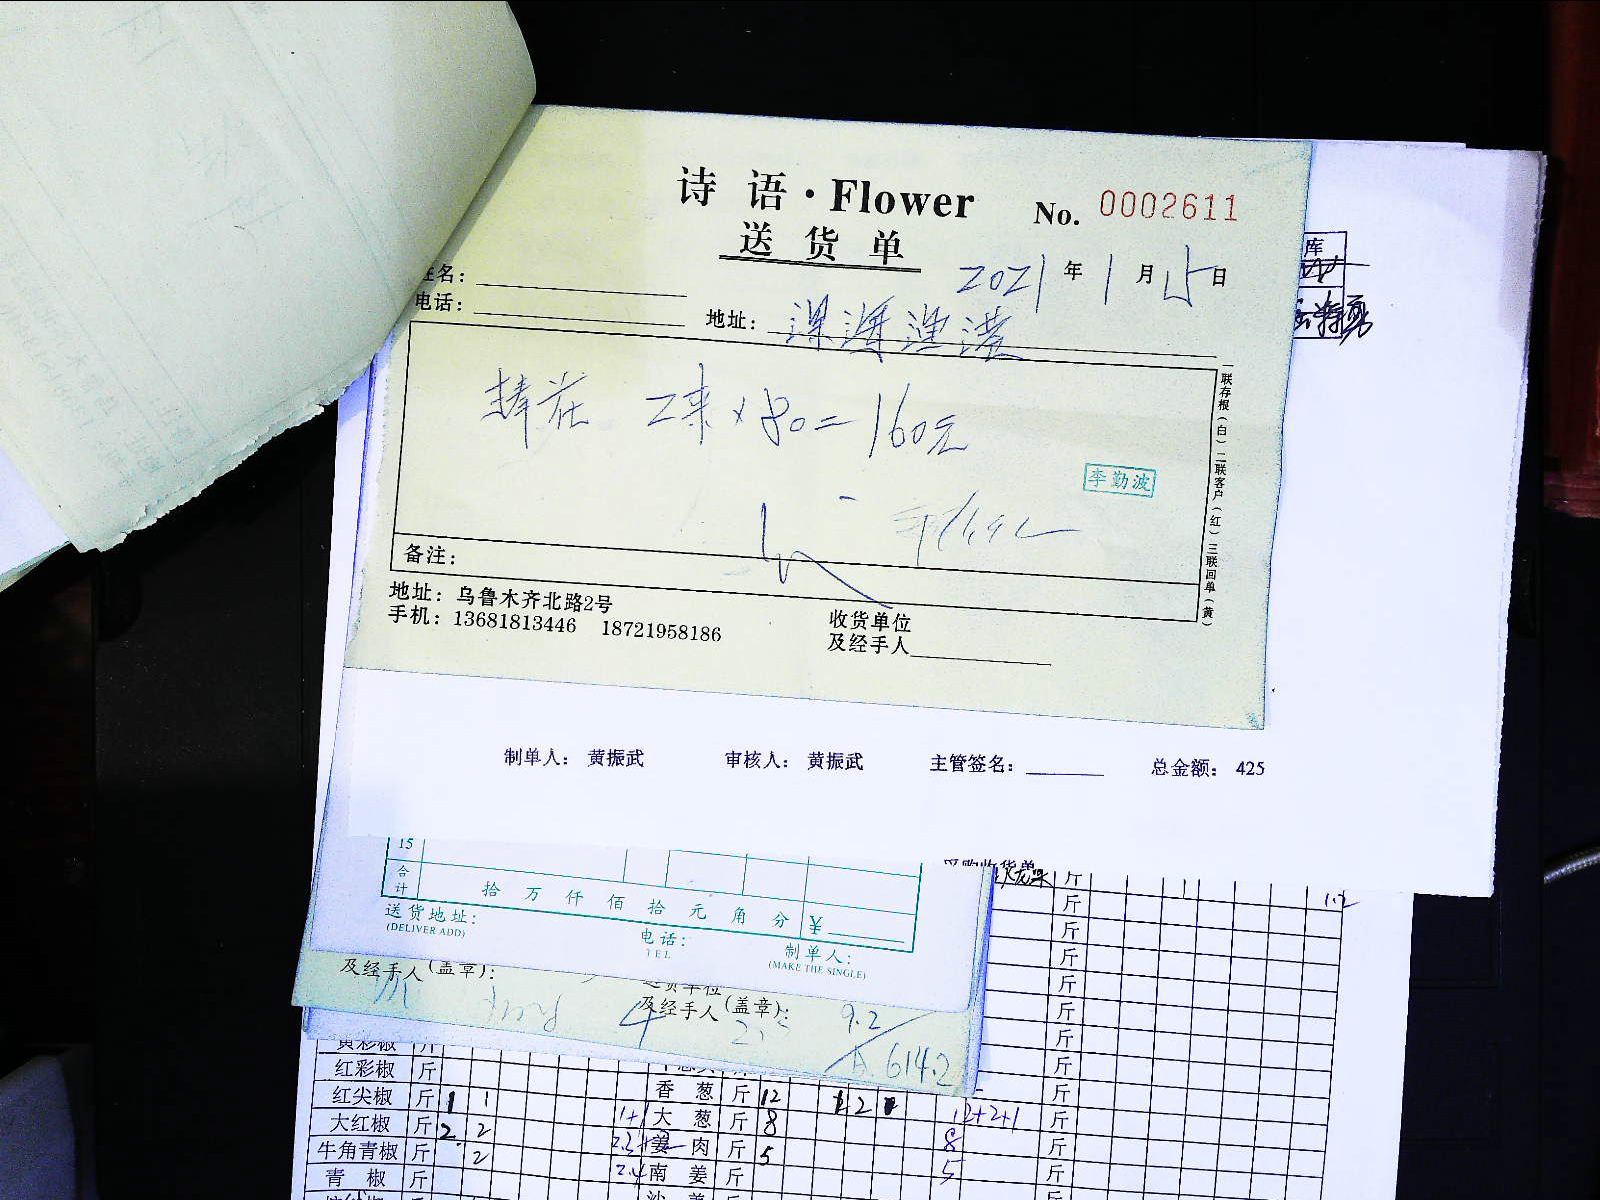 诗 语·Flower
No. 0002611
送 货 单
2021 年 1 月 15 日
姓名:
电话:
地址:
捧花 2束×80=160元
李勤波
备注:
一联存根(白)二联客户(红)三联回单(黄)
地址: 乌鲁木齐北路2号
手机: 13681813446 18721958186
收货单位
及经手人
库
制单人: 黄振武 审核人: 黄振武 主管签名: 总金额: 425
15
合计 拾 万 仟 佰 拾 元 角 分 ¥
送货地址:
(DELIVER ADD)
电话:
TEL
制单人:
(MAKE THE SINGLE)
采购收货单
斤 1.2
斤
斤
斤
斤
斤
斤
斤
斤
及经手人(盖章):
送货单位
及经手人(盖章):
9.2
614.2
黄彩椒 斤
红彩椒 斤
红尖椒 斤 1 1 香 葱 斤 12 12+2+1 斤
大红椒 斤 2 2 大 葱 斤 8 8 斤
牛角青椒 斤 2 姜 肉 斤 5 5 斤
青 椒 斤 南 姜 斤 斤
沙 姜 斤